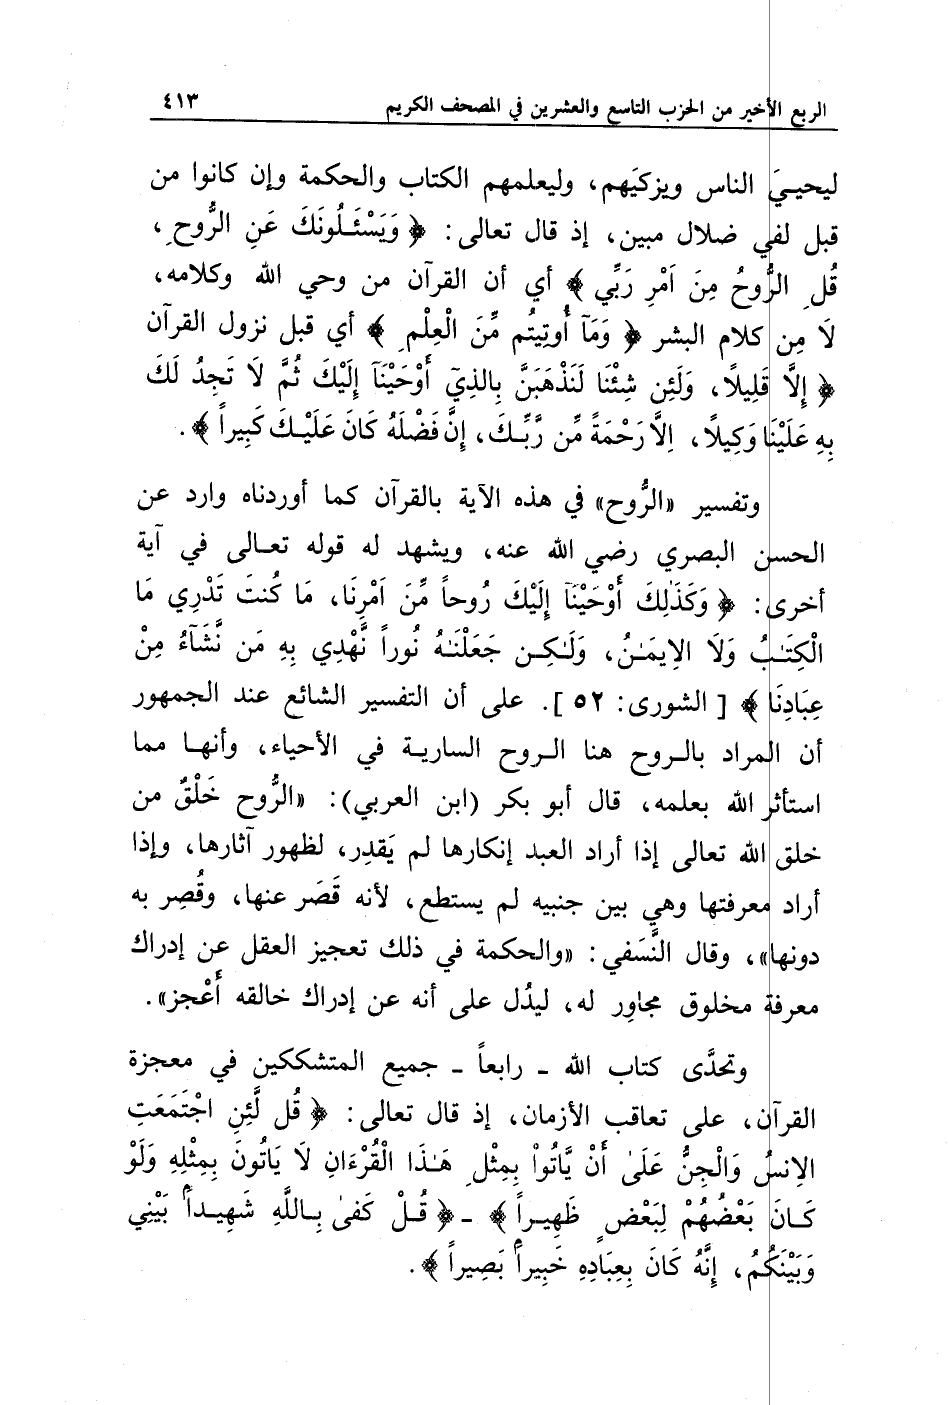 الربع الأخير من الحزب التاسع والعشرين في المصحف الكريم ٤١٣
ليحييَ الناس ويزكيَهم، وليعلمهم الكتاب والحكمة وإن كانوا من
قبل لفي ضلال مبين، إذ قال تعالى: ﴿ وَيَسْـَٔلُونَكَ عَنِ الرُّوحِ،
قُلِ الرُّوحُ مِنَ اَمْرِ رَبِّي ﴾ أي أن القرآن من وحي الله وكلامه،
لَا مِن كلام البشر ﴿ وَمَآ أُوتِيتُم مِّنَ الْعِلْمِ ﴾ أي قبل نزول القرآن
﴿ إِلَّا قَلِيلًا، وَلَئِن شِئْنَا لَنَذْهَبَنَّ بِالذِيٓ أَوْحَيْنَآ إِلَيْكَ ثُمَّ لَا تَجِدُ لَكَ
بِهِ عَلَيْنَا وَكِيلًا، اِلَّا رَحْمَةً مِّن رَّبِّـكَ، إِنَّ فَضْلَهُ كَانَ عَلَيْـكَ كَبِيراً ﴾.
وتفسير «الرُّوح» في هذه الآية بالقرآن كما أوردناه وارد عن
الحسن البصري رضي الله عنه، ويشهد له قوله تعـالى في آية
أخرى: ﴿ وَكَذَٰلِكَ أَوْحَيْنَآ إِلَيْكَ رُوحاً مِّنَ اَمْرِنَا، مَا كُنتَ تَدْرِي مَا
الْكِتَـٰبُ وَلَا الاِيمَـٰنُ، وَلَـٰكِـن جَعَلْنَـٰهُ نُوراً نَّهْدِي بِهِ مَن نَّشَآءُ مِنْ
عِبَادِنَا ﴾ [ الشورى: ٥٢ ]. على أن التفسير الشائع عند الجمهور
أن المراد بالـروح هنا الـروح السارية في الأحياء، وأنهـا مما
استأثر الله بعلمه، قال أبو بكر (ابن العربي): «الرُّوح خَلْقٌ من
خلق الله تعالى إذا أراد العبد إنكارها لم يَقدِر، لظهور آثارها، وإذا
أراد معرفتها وهي بين جنبيه لم يستطع، لأنه قَصَر عنها، وقُصِر به
دونها»، وقال النَّسَفي: «والحكمة في ذلك تعجيز العقل عن إدراك
معرفة مخلوق مجاوِر له، ليدُل على أنه عن إدراك خالقه أَعْجز».
وتحدَّى كتاب الله ـ رابعاً ـ جميع المتشككين في معجزة
القرآن، على تعاقب الأزمان، إذ قال تعالى: ﴿ قُل لَّئِنِ اجْتَمَعَتِ
الاِنسُ وَالْجِنُّ عَلَىٰ أَنْ يَّاتُواْ بِمِثْلِ هَـٰذَا الْقُرْءَانِ لَا يَاتُونَ بِمِثْلِهِ وَلَوْ
كَـانَ بَعْضُهُمْ لِبَعْضٍ ظَهِيـراً ﴾ ـ ﴿ قُـلْ كَفىٰ بِـاللَّهِ شَهِيـداً بَيْنِي
وَبَيْنَكُمُ، إِنَّهُ كَانَ بِعِبَادِهِ خَبِيراً بَصِيراً ﴾.